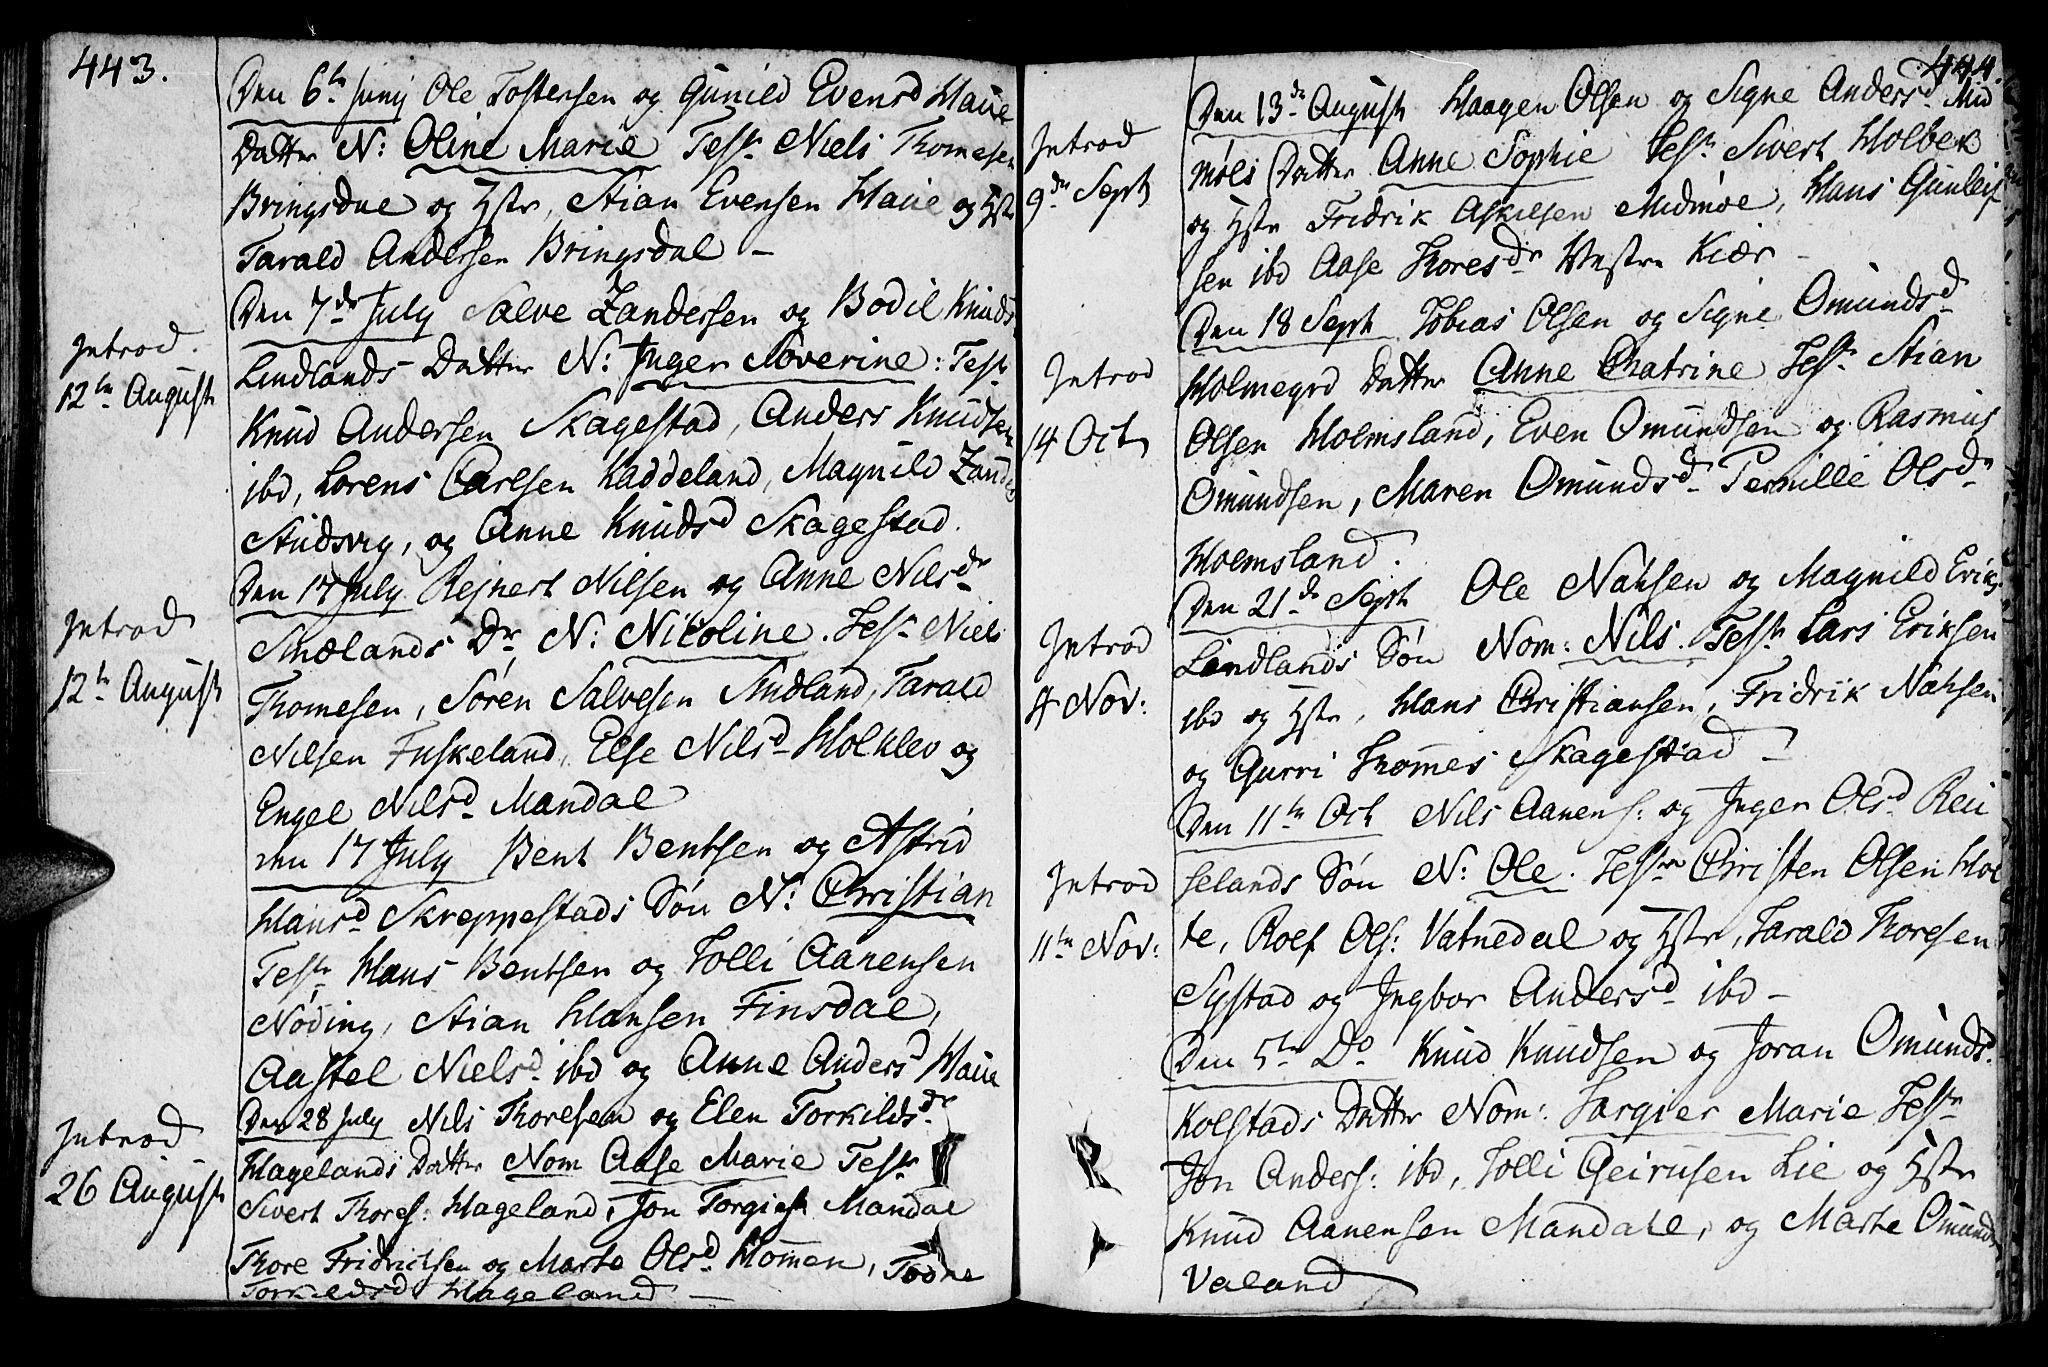 443.
Den 6te Junij Ole Tostensen og Gunild Evensd Haue
Datter N: Oline Marie Test: Niels Thomesen
Bringsdal og Hstr, Stian Evensen Haue og Hstr
Tarald Andersen Bringsdal –
Den 7de July Salve Zandersen og Bodil Knuds
Introd.
12te August
Lindlands Datter N: Inger Soverine: Test
Knud Andersen Skagestad, Anders Knudsen
ibd, Lorens Carlsen Kaddeland, Magnild Zanders
Studsvig, og Anne Knudsd Skagestad.
Den 17 July Rejnert Nilsen og Anne Nilsdr
Introd
12te August
Smelands Dr N: Nicoline. Test: Niels
Thomesen, Sören Salvesen Smeland, Tarald
Nilsen Fuskeland, Else Nilsd Holklev og
Engel Nilsd Mandal
Den 17 July Bent Bentsen og Astrid
Hansd Skreppestads Sön N: Christian
Test: Hans Bentsen og Tolli Aanensen
Nöding, Stian Hansen Finsdal,
Aastel Nielsd ibd og Anne Andersd Haue
Introd
26 August
Den 28 July Nils Thoresen og Elen Torkildsdr
Hagelands Datter Nom Aase Marie Test
Sivert Thores: Hageland, Jon Torgiest Mandal
Thore Fridrichsen og Marte Olsd Homen, Todne
Torkildsd Hageland –
444.
Den 13de August Haagen Olsen og Signe Andersd Mid
Introd
9de Sept
möls Datter Anne Sophie Test: Sivert Holbek
og Hstr Fridrik Askilsen Midmöe, Hans Gunleif
sen ibd Aase Thoresdr Vestre Kiær –
Den 18 Sept Tobias Olsen og Signe Omundsd
Introd
14 Oct
Holmegrd Datter Anne Chatrine Test: Stian
Olsen Holmsland, Even Omundsen og Rasmus
Omundsen, Maren Omundsd Pernille Olsd
Holmsland.
Den 21de Sept Ole Nahsen og Magnild Eriks
Introd
4 Nov:
Lindlands Sön Nom: Nils. Test: Lars Eriksen
ibd og Hstr, Hans Christiansen, Fridrik Nahsen
og Gurri Thommes Skagestad –
Den 11te Oct Nils Aanens: og Inger Olsd Reu
Introd
11te Nov:
selands Sön N: Ole. Test: Christen Olsen Hol
te, Rolf Ols: Vatnedal og Hstr, Tarald Thoresen
Systad og Ingbor Andersd ibd –
Den 5te Do Knud Knudsen og Joran Omundsd
Kolstads Datter Nom: Targier Marie Test
Jon Anders: ibd, Tolli Geirusen Lie og Hstr
Knud Aanensen Mandahl, og Marte Omunds
Valand